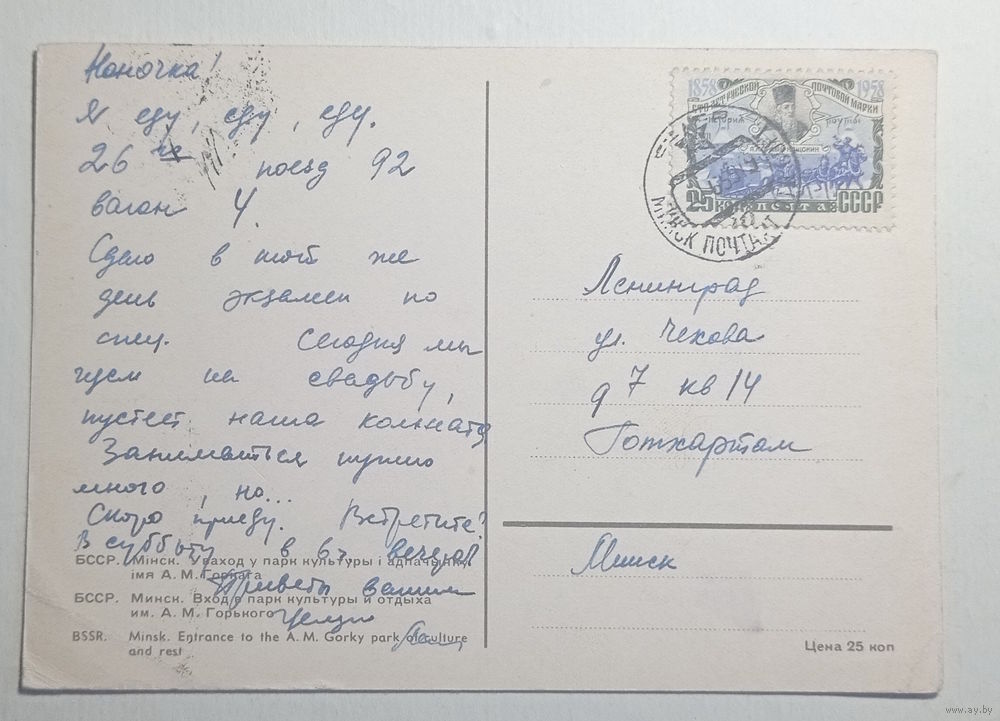 Ноночка!
Я еду, еду, еду.
26 го поезд 92
вагон 4.
Сдаю в тот же
день экзамен по
спец. Сегодня мы
идем на свадьбу,
пустеет наша комната
Заниматься нужно
много, но...
Скоро приеду. Встретите?
В субботу в 6ч вечера
Приветы вашим
Целую
БССР. Мінск. Уваход у парк культуры і адпачынку
імя А. М. Горкага
БССР. Минск. Вход в парк культуры и отдыха
им. А. М. Горького
BSSR. Minsk. Entrance to the A. M. Gorky park of culture
and rest
1858 1958
СТО ЛЕТ РУССКОЙ ПОЧТОВОЙ МАРКИ
история почты
25 КОП ПОЧТА СССР
МИНСК ПОЧТАМТ
Ленинград
ул. Чехова
д 7 кв 14
Готхартам
Минск
Цена 25 коп
www.ay.by